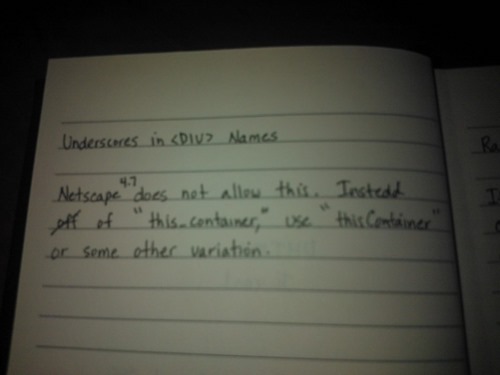 Underscores in <DIV> Names
Netscape 4.7 does not allow this. Instedd
off of "this_container," use "thisContainer"
or some other variation.
Ra